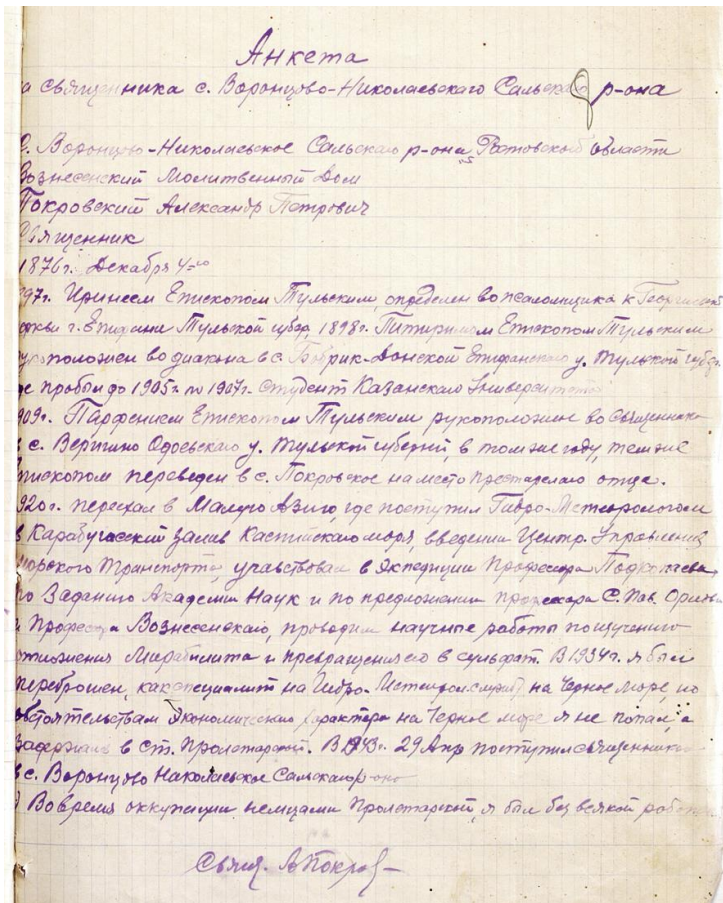 Анкета
а священника с. Воронцово-Николаевского Сальского р-она
с. Воронцово-Николаевское Сальского р-она Ростовской области
Вознесенский Молитвенный Дом
Покровский Александр Петрович
Священник
1876 г. Декабря 4-го
897 г. Иринеем Епископом Тульским, определен во псаломщика к Георгиевской
церкви г. Епифани Тульской губер, 1898 г. Питиримом Епископом Тульским
рукоположен во диакона в с. Бобрик-Донской Епифанского у. Тульской губер.
где пробыл до 1905 г. по 1907 г. студент Казанского Университета
909 г. Парфением Епископом Тульским рукоположен во священника
в с. Одоевского у. Тульской губернии, в том же году, тем же
Епископом переведен в с. Покровское на место отца.
920 г. переехал в Малую Азию, где поступил Гидро-Метеорологом
в Карабугасский залив Каспийского моря, введении Центр. Управления
морского Транспорта, учавствовал в экспедиции Профессора Подкопаева
По Заданию Академии Наук и по предложении профессара С. Пав.
и Профессора Вознесенского, проводил научные работы по изучению
отложения Мирабилита и превращения его в сульфат. В 1934 г. я был
переброшен, как специалит на Гидро. на Черное море, но
обстоятельствам Экономическаго характера на Черное море я не попал, а
в ст. Пролетарской. В 1943 г. 29 Апр поступил священником
в с. Воронцово Николаевское Сальского р-она
Во время оккупации немцами Пролетарской, я был без всякой работы
Свящ. А Покров